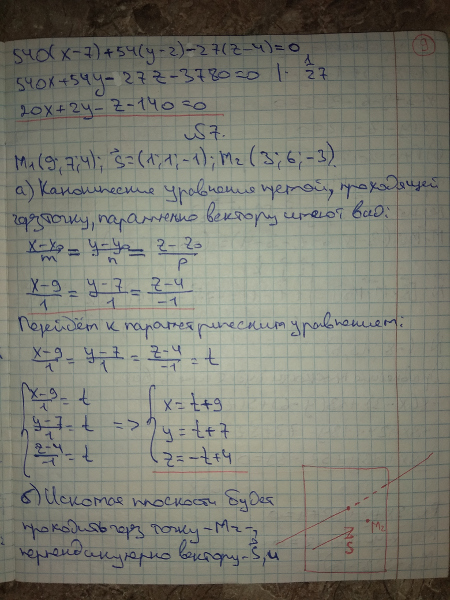 540(x-7)+54(y-2)-27(z-4)=0
540x+54y-27z-3780=0 |· 1/27
20x+2y-z-140=0
№7.
M₁(9;7;4); s⃗=(1;1;-1); M₂(3;6;-3).
а) Канонические уравнения прямой, проходящей
через точку, параллельно вектору имеют вид:
(x-x₀)/m = (y-y₀)/n = (z-z₀)/p
(x-9)/1 = (y-7)/1 = (z-4)/-1
Перейдём к параметрическим уравнениям:
(x-9)/1 = (y-7)/1 = (z-4)/-1 = t
(x-9)/1 = t
(y-7)/1 = t
(z-4)/-1 = t
=>
x=t+9
y=t+7
z=-t+4
б) Искомая плоскость будет
проходить через точку - M₂ -,
перпендикулярно вектору - s⃗, и
M₂
s⃗